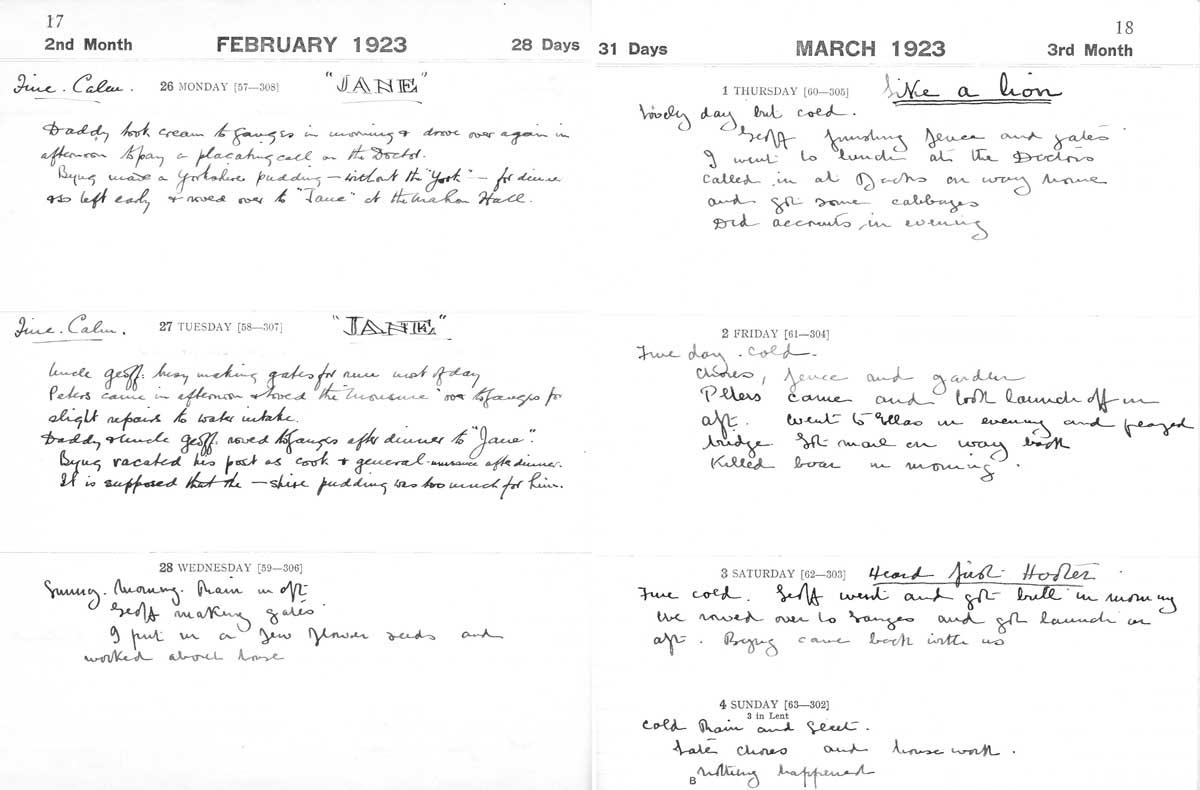 17
2nd Month FEBRUARY 1923 28 Days
Fine. Calm. 26 MONDAY [57—308] "JANE"
Daddy took cream to Ganges in morning & drove over again in
afternoon to pay a placating call on the Doctor.
Byng made a Yorkshire pudding — without the "York" — for dinner
& so left early & rowed over to "Jane" at the Mahon Hall.
Fine. Calm. 27 TUESDAY [58—307] "JANE"
Uncle Geoff: busy making gates for run most of day
Peters came in afternoon & towed the over to Ganges for
slight repairs to water intake.
Daddy & Uncle Geoff: rowed to Ganges after dinner to "Jane".
Byng vacated his post as cook & general after dinner.
It is supposed that the — shire pudding was too much for him.
28 WEDNESDAY [59—306]
Sunny. Morning. Rain in aft
Geoff making gates
I put in a few flower seeds and
worked about house
18
31 Days MARCH 1923 3rd Month
1 THURSDAY [60—305] Like a lion
Lovely day but cold.
Geoff finishing fence and gates
I went to lunch at the Doctors
called in at on way home
and got some cabbages
Did accounts in evening
2 FRIDAY [61—304]
Fine day. cold.
Chores, fence and garden
Peters came and took launch off in
aft. Went to Ellas in evening and played
bridge. Got mail on way back
Killed boar in morning.
3 SATURDAY [62—303] Heard first Hooter
Fine cold. Geoff went and got bull in morning
We rowed over to Ganges and got launch in
aft. Byng came back with us
4 SUNDAY [63—302]
3 in Lent
Cold Rain and Sleet.
Late chores and house work.
Nothing happened
B